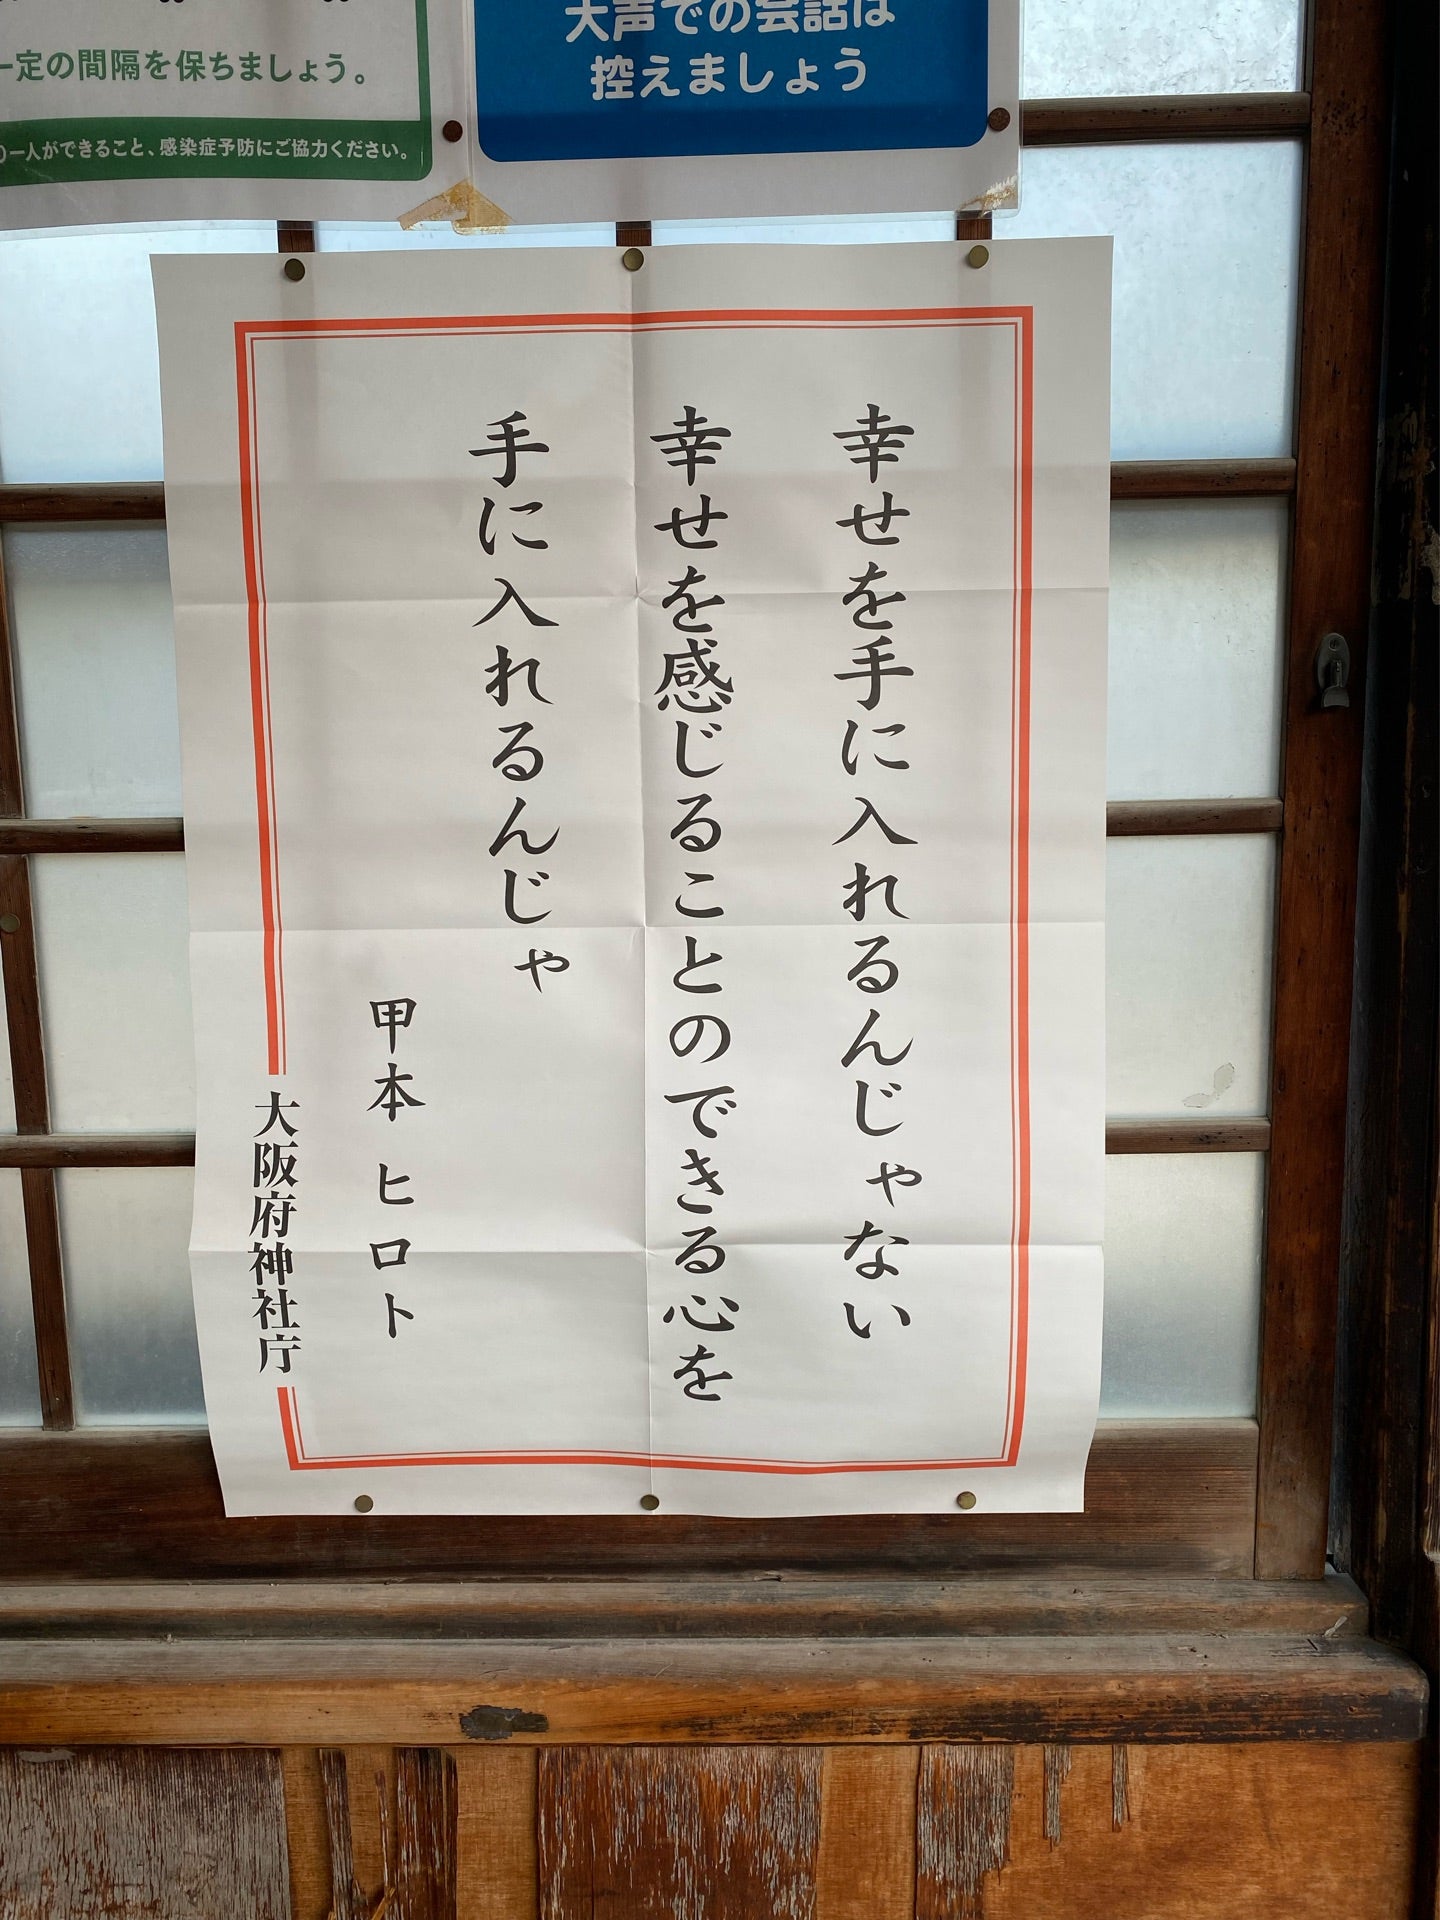 一定の間隔を保ちましょう。
一人ができること、感染症予防にご協力ください。
大声での会話は
控えましょう
幸せを手に入れるんじゃない
幸せを感じることのできる心を
手に入れるんじゃ
甲本 ヒロト
大阪府神社庁